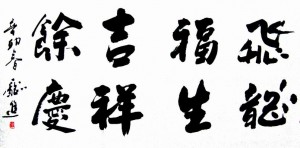 飛龍
福生
吉祥
餘慶
辛卯春